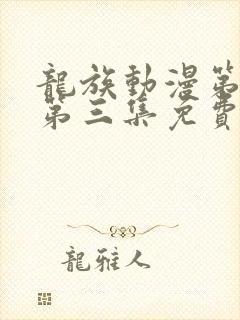 龍族動漫第
第三集免費
龍雅人